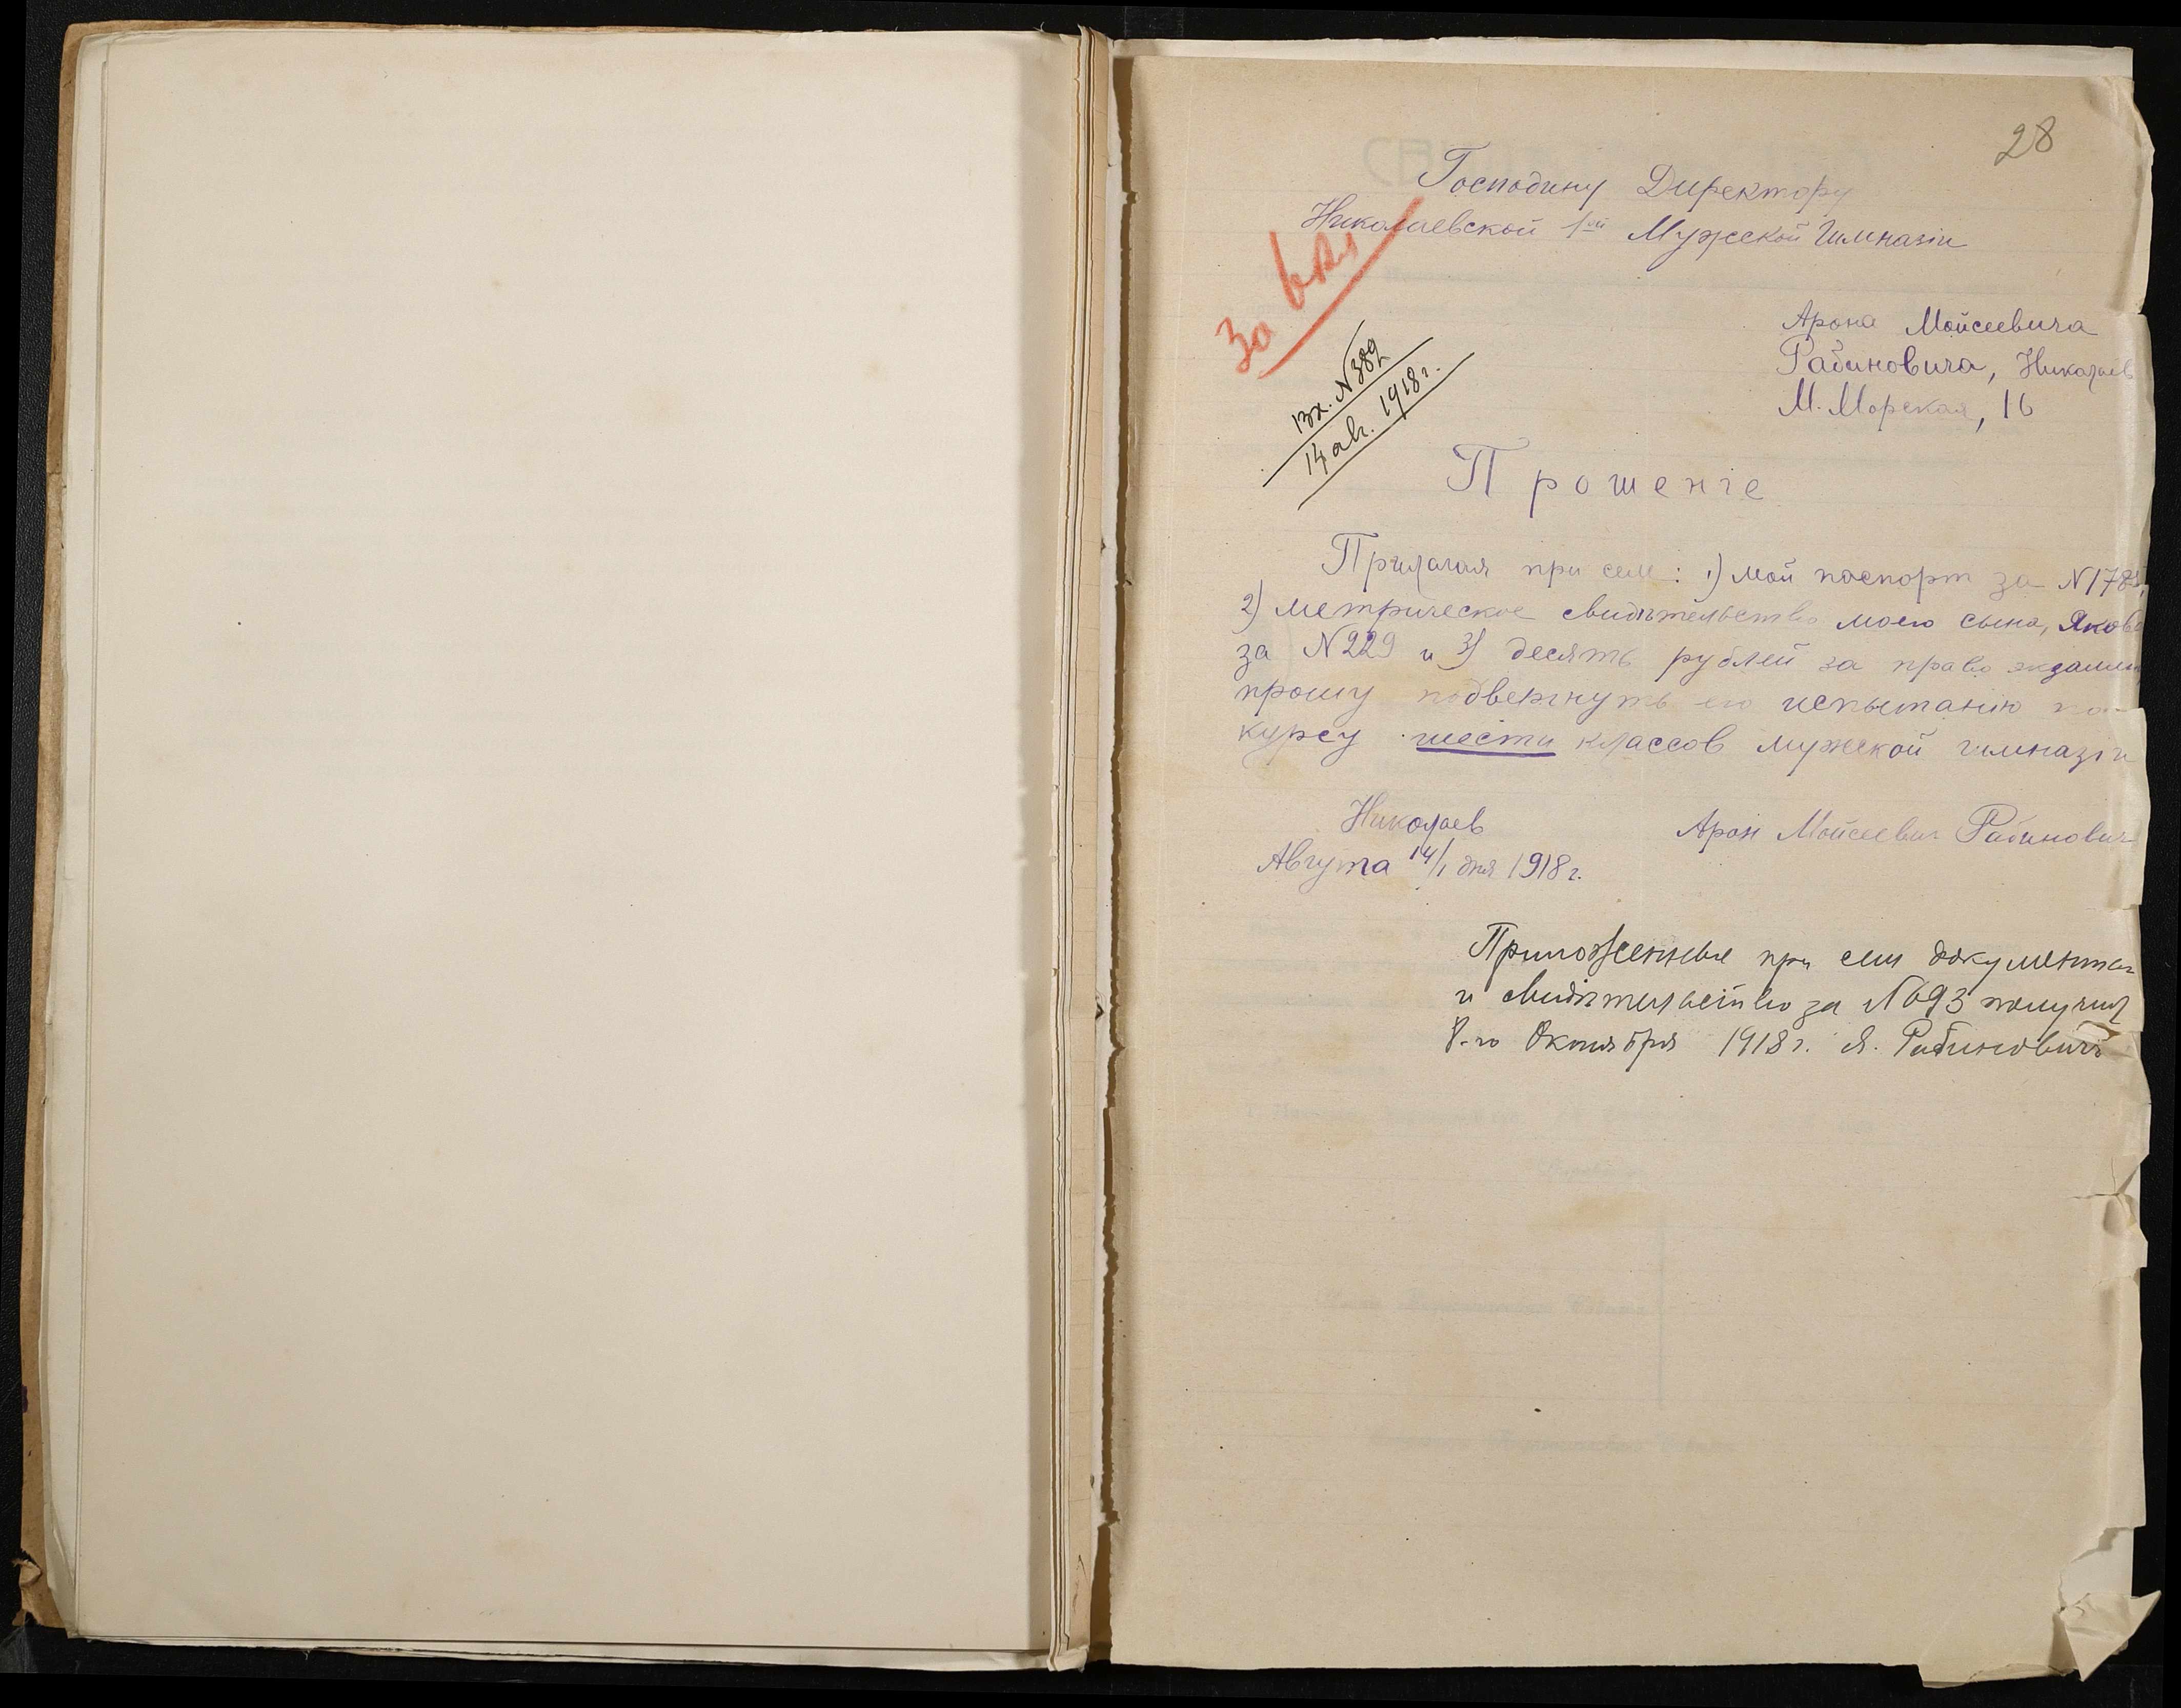 28
Господину Директору
Николаевской 1ой Мужской Гимназіи
За 6 кл
Арона Мойсеевича
Рабиновича, Николаев
М. Морская, 16
вх. N 389
14 ав. 1918 г.
Прошеніе
Прилагая при сем: 1) мой паспорт за N
2) метрическое свидѣтельство моего сына, Якова
за N 229 и 3) десять рублей за право экзамена
прошу подвергнуть его испытанию по
курсу шести классов мужской гимназіи
Николаев
Арон Мойсеевич Рабинович
Августа 14/1 дня 1918 г.
Приложенные при сем документы
и свидѣтельство за N 693 получил
8-го Октября 1918 г. Я. Рабиновичъ